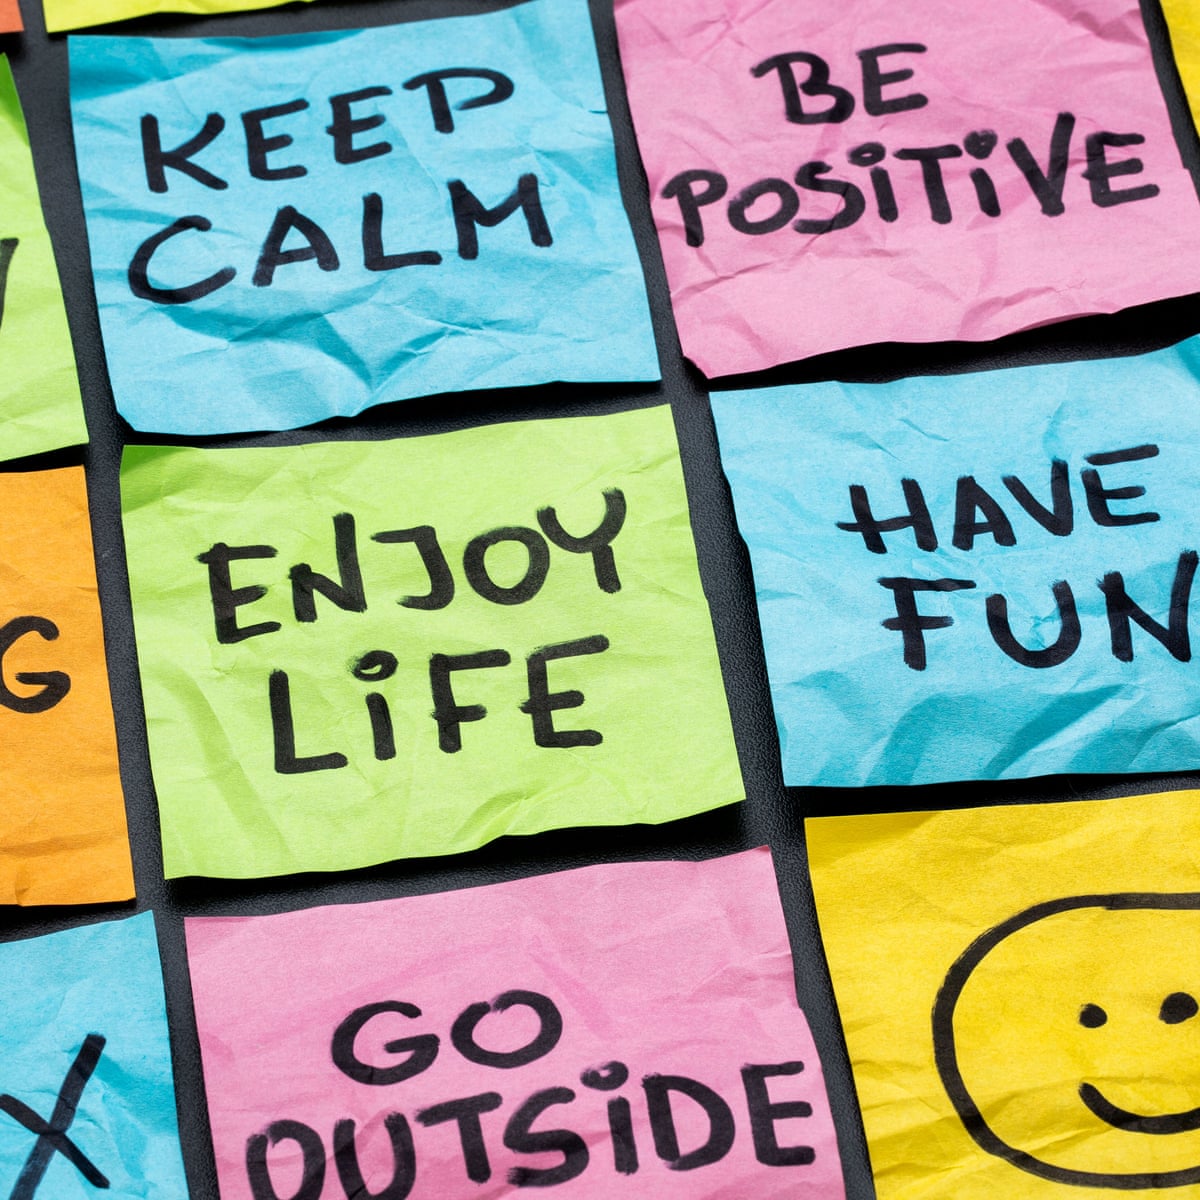 KEEP
CALM
BE
POSiTiVE
ENJOY
LiFE
HAVE
FUN
GO
OUTSiDE